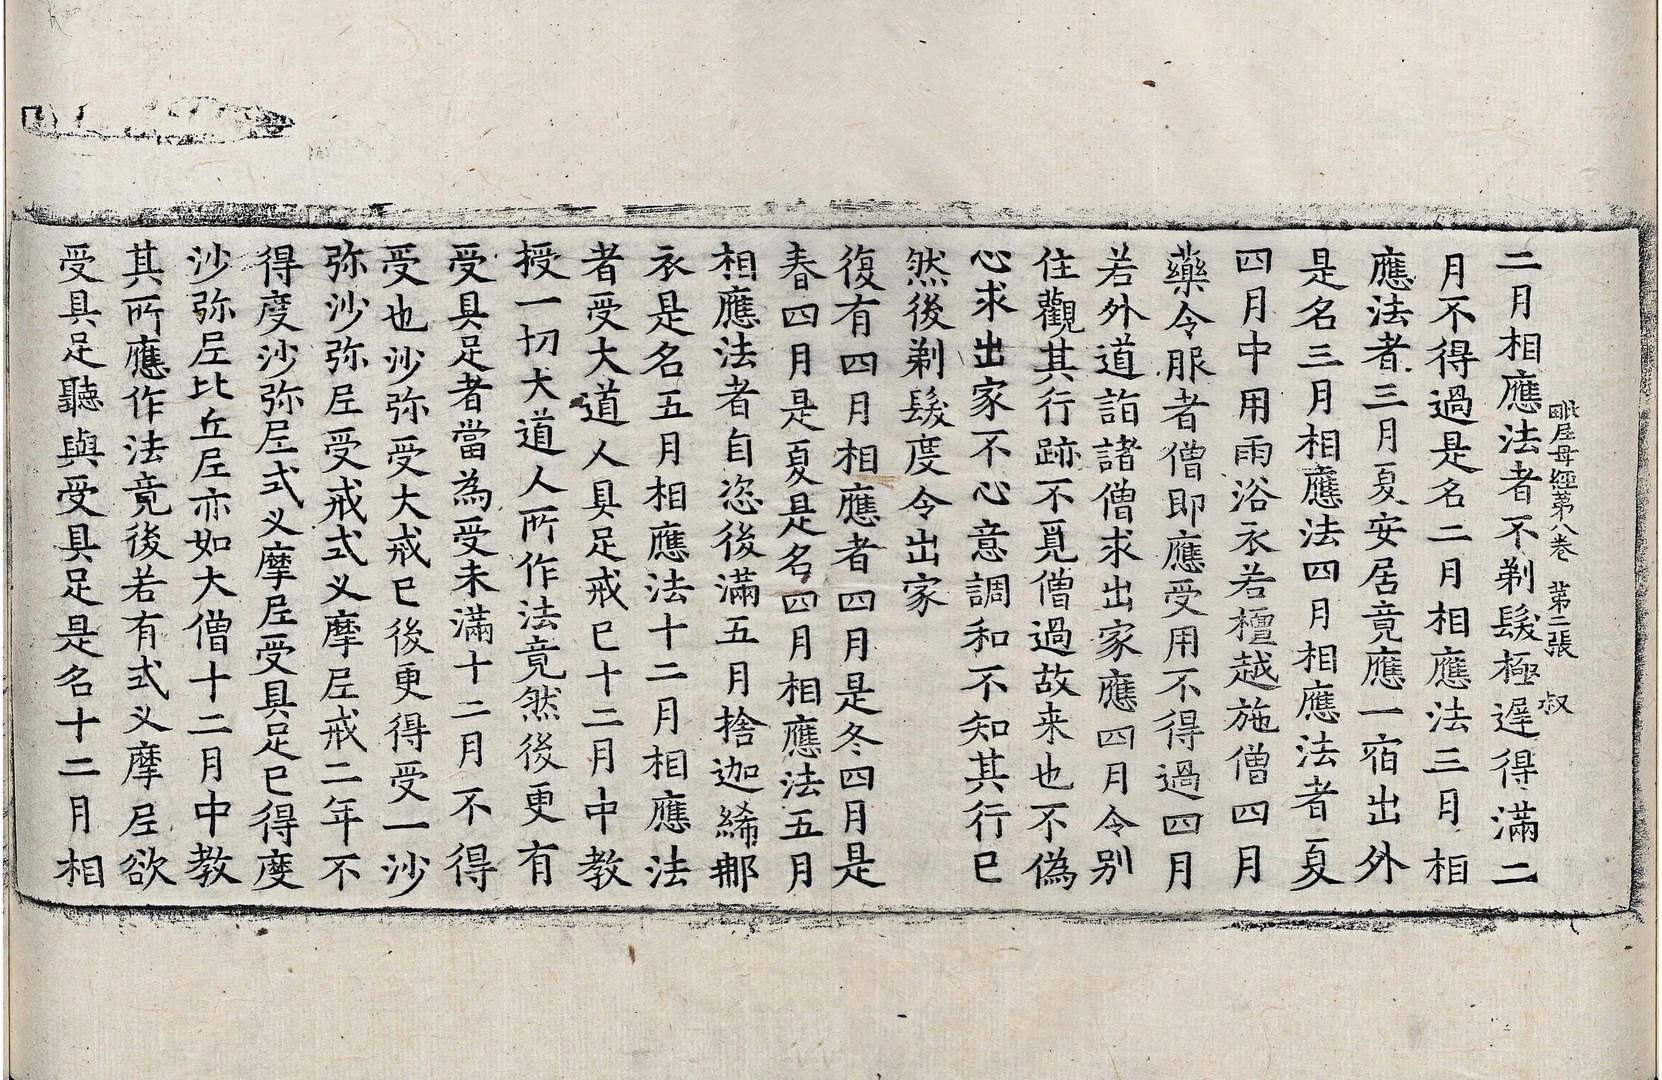 毗尼母經第八卷　第二張　叔
二月相應法者不剃髮極遲得滿二
月不得過是名二月相應法三月相
應法者三月夏安居竟應一宿出外
是名三月相應法四月相應法者夏
四月中用雨浴衣若檀越施僧四月
藥令服者僧即應受用不得過四月
若外道詣諸僧求出家應四月令别
住觀其行跡不覓僧過故来也不偽
心求出家不心意調和不知其行已
然後剃髮度令出家
復有四月相應者四月是冬四月是
春四月是夏是名四月相應法五月
相應法者自恣後滿五月捨迦絺那
衣是名五月相應法十二月相應法
者受大道人具足戒已十二月中教
授一切大道人所作法竟然後更有
受具足者當為受未滿十二月不得
受也沙弥受大戒已後更得受一沙
弥沙弥尼受戒式义摩尼戒二年不
得度沙弥尼式义摩尼受具足已得度
沙弥尼比丘尼亦如大僧十二月中教
其所應作法竟後若有式义摩尼欲
受具足聽與受具足是名十二月相